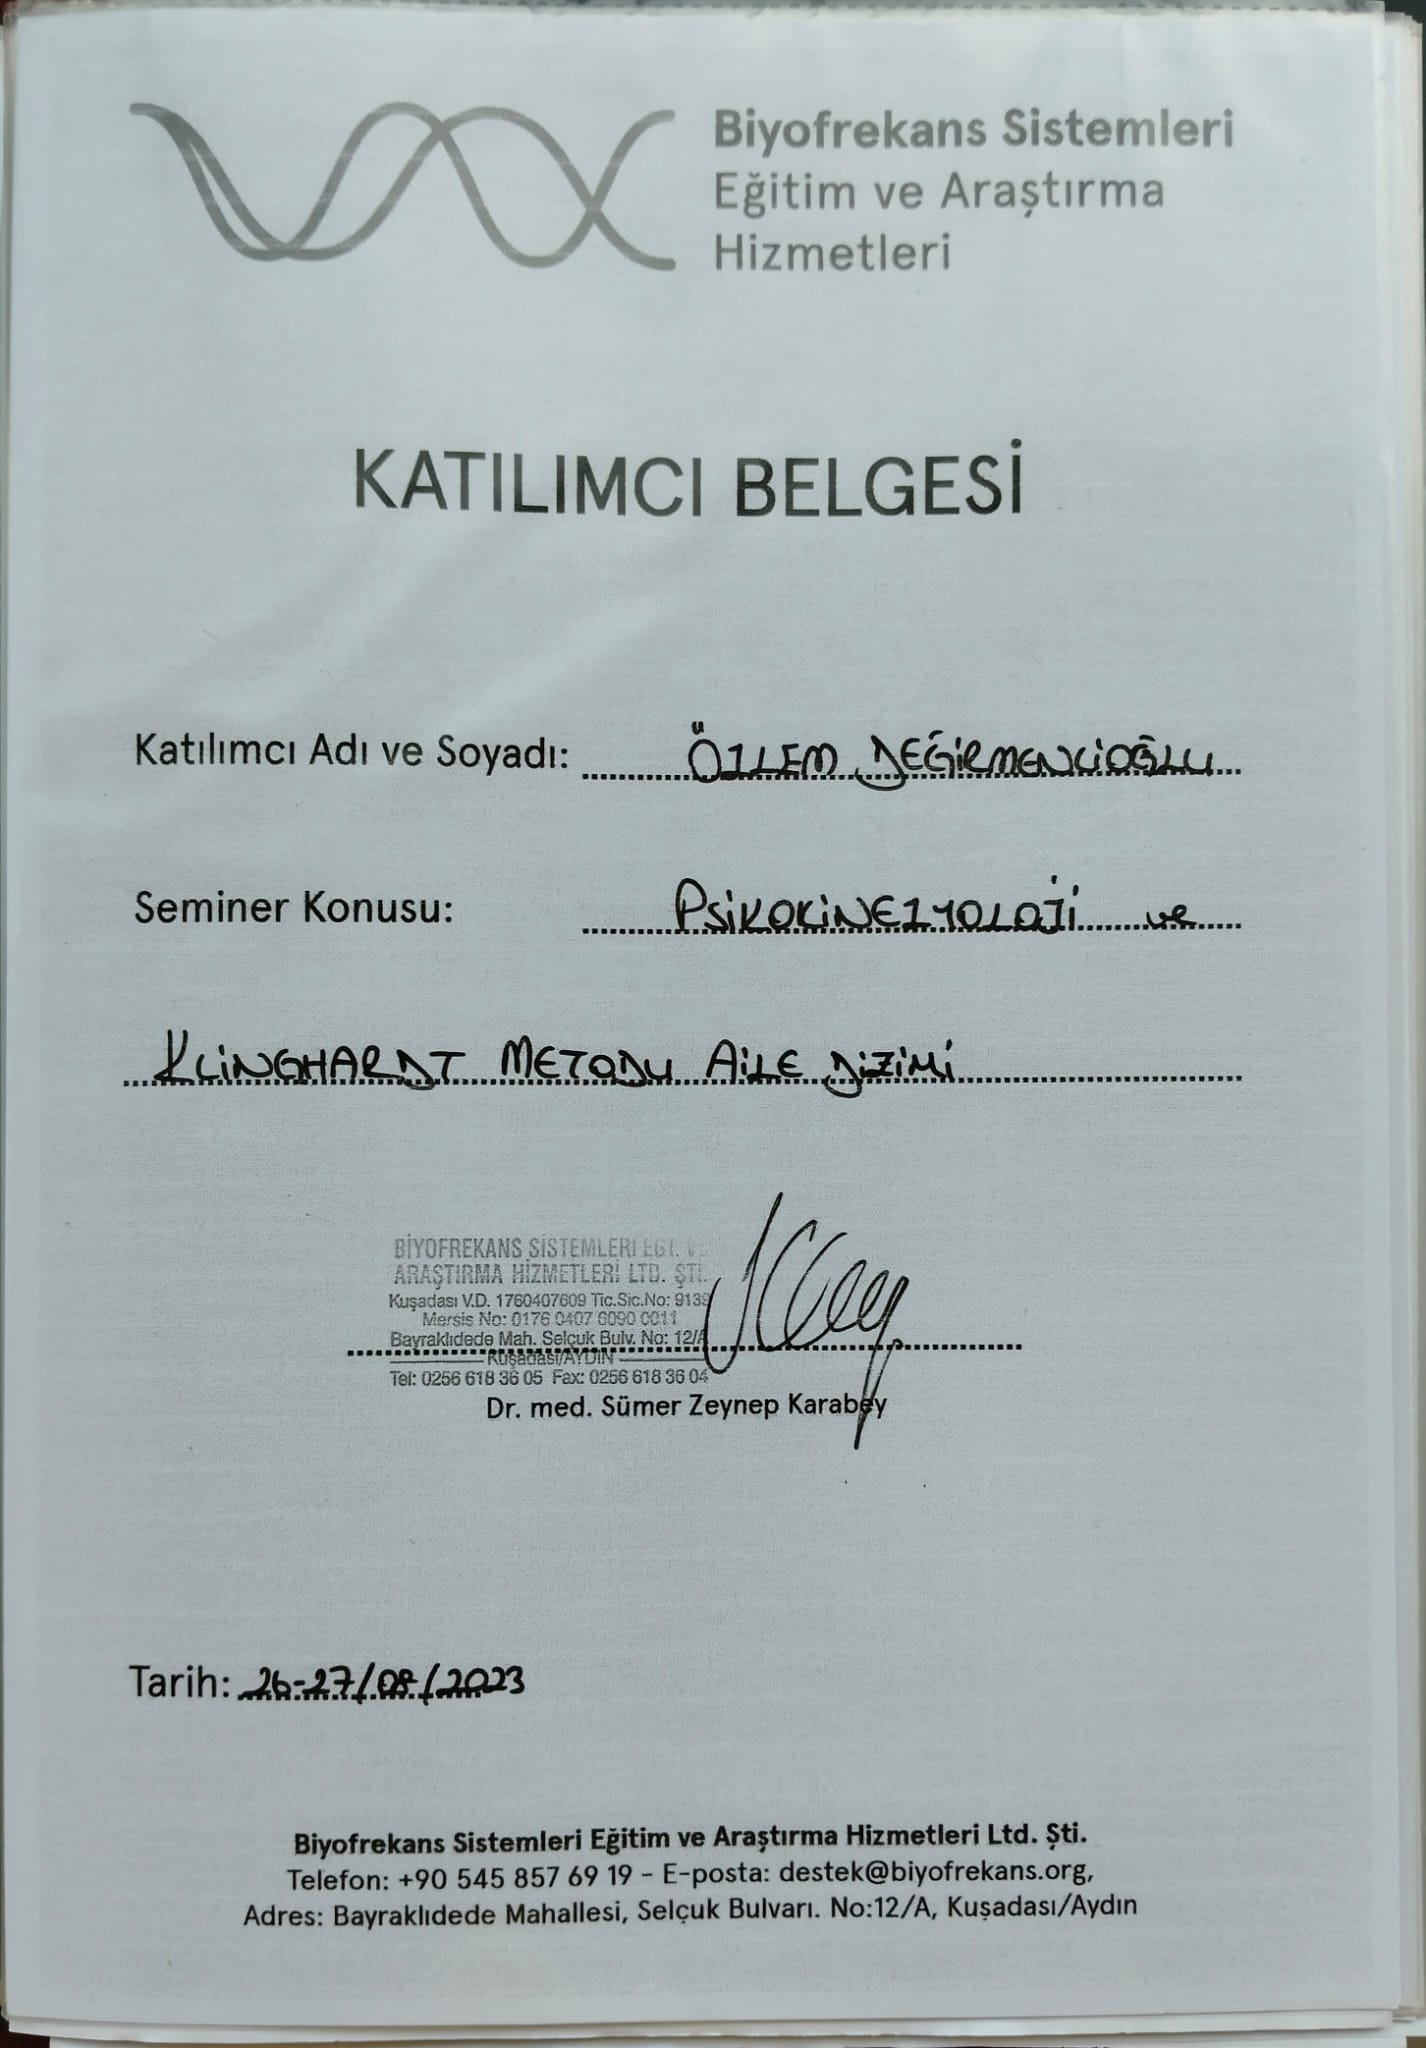 Biyofrekans Sistemleri
Eğitim ve Araştırma
Hizmetleri
KATILIMCI BELGESİ
Katılımcı Adı ve Soyadı: ÖZLEM DEĞİRMENCİOĞLU
Seminer Konusu: PSİKOKİNEZYOLOJİ ve
KLİNGHARDT METODU AİLE DİZİMİ
BİYOFREKANS SİSTEMLERİ EĞT. VE
ARAŞTIRMA HİZMETLERİ LTD. ŞTİ.
Kuşadası V.D. 1760407609 Tic.Sic.No: 9139
Mersis No: 0176 0407 6090 0011
Bayraklıdede Mah. Selçuk Bulv. No: 12/A
Kuşadası/AYDIN
Tel: 0256 618 36 05 Fax: 0256 618 36 04
Dr. med. Sümer Zeynep Karabey
Tarih: 26-27/08/2023
Biyofrekans Sistemleri Eğitim ve Araştırma Hizmetleri Ltd. Şti.
Telefon: +90 545 857 69 19 - E-posta: destek@biyofrekans.org,
Adres: Bayraklıdede Mahallesi, Selçuk Bulvarı. No:12/A, Kuşadası/Aydın